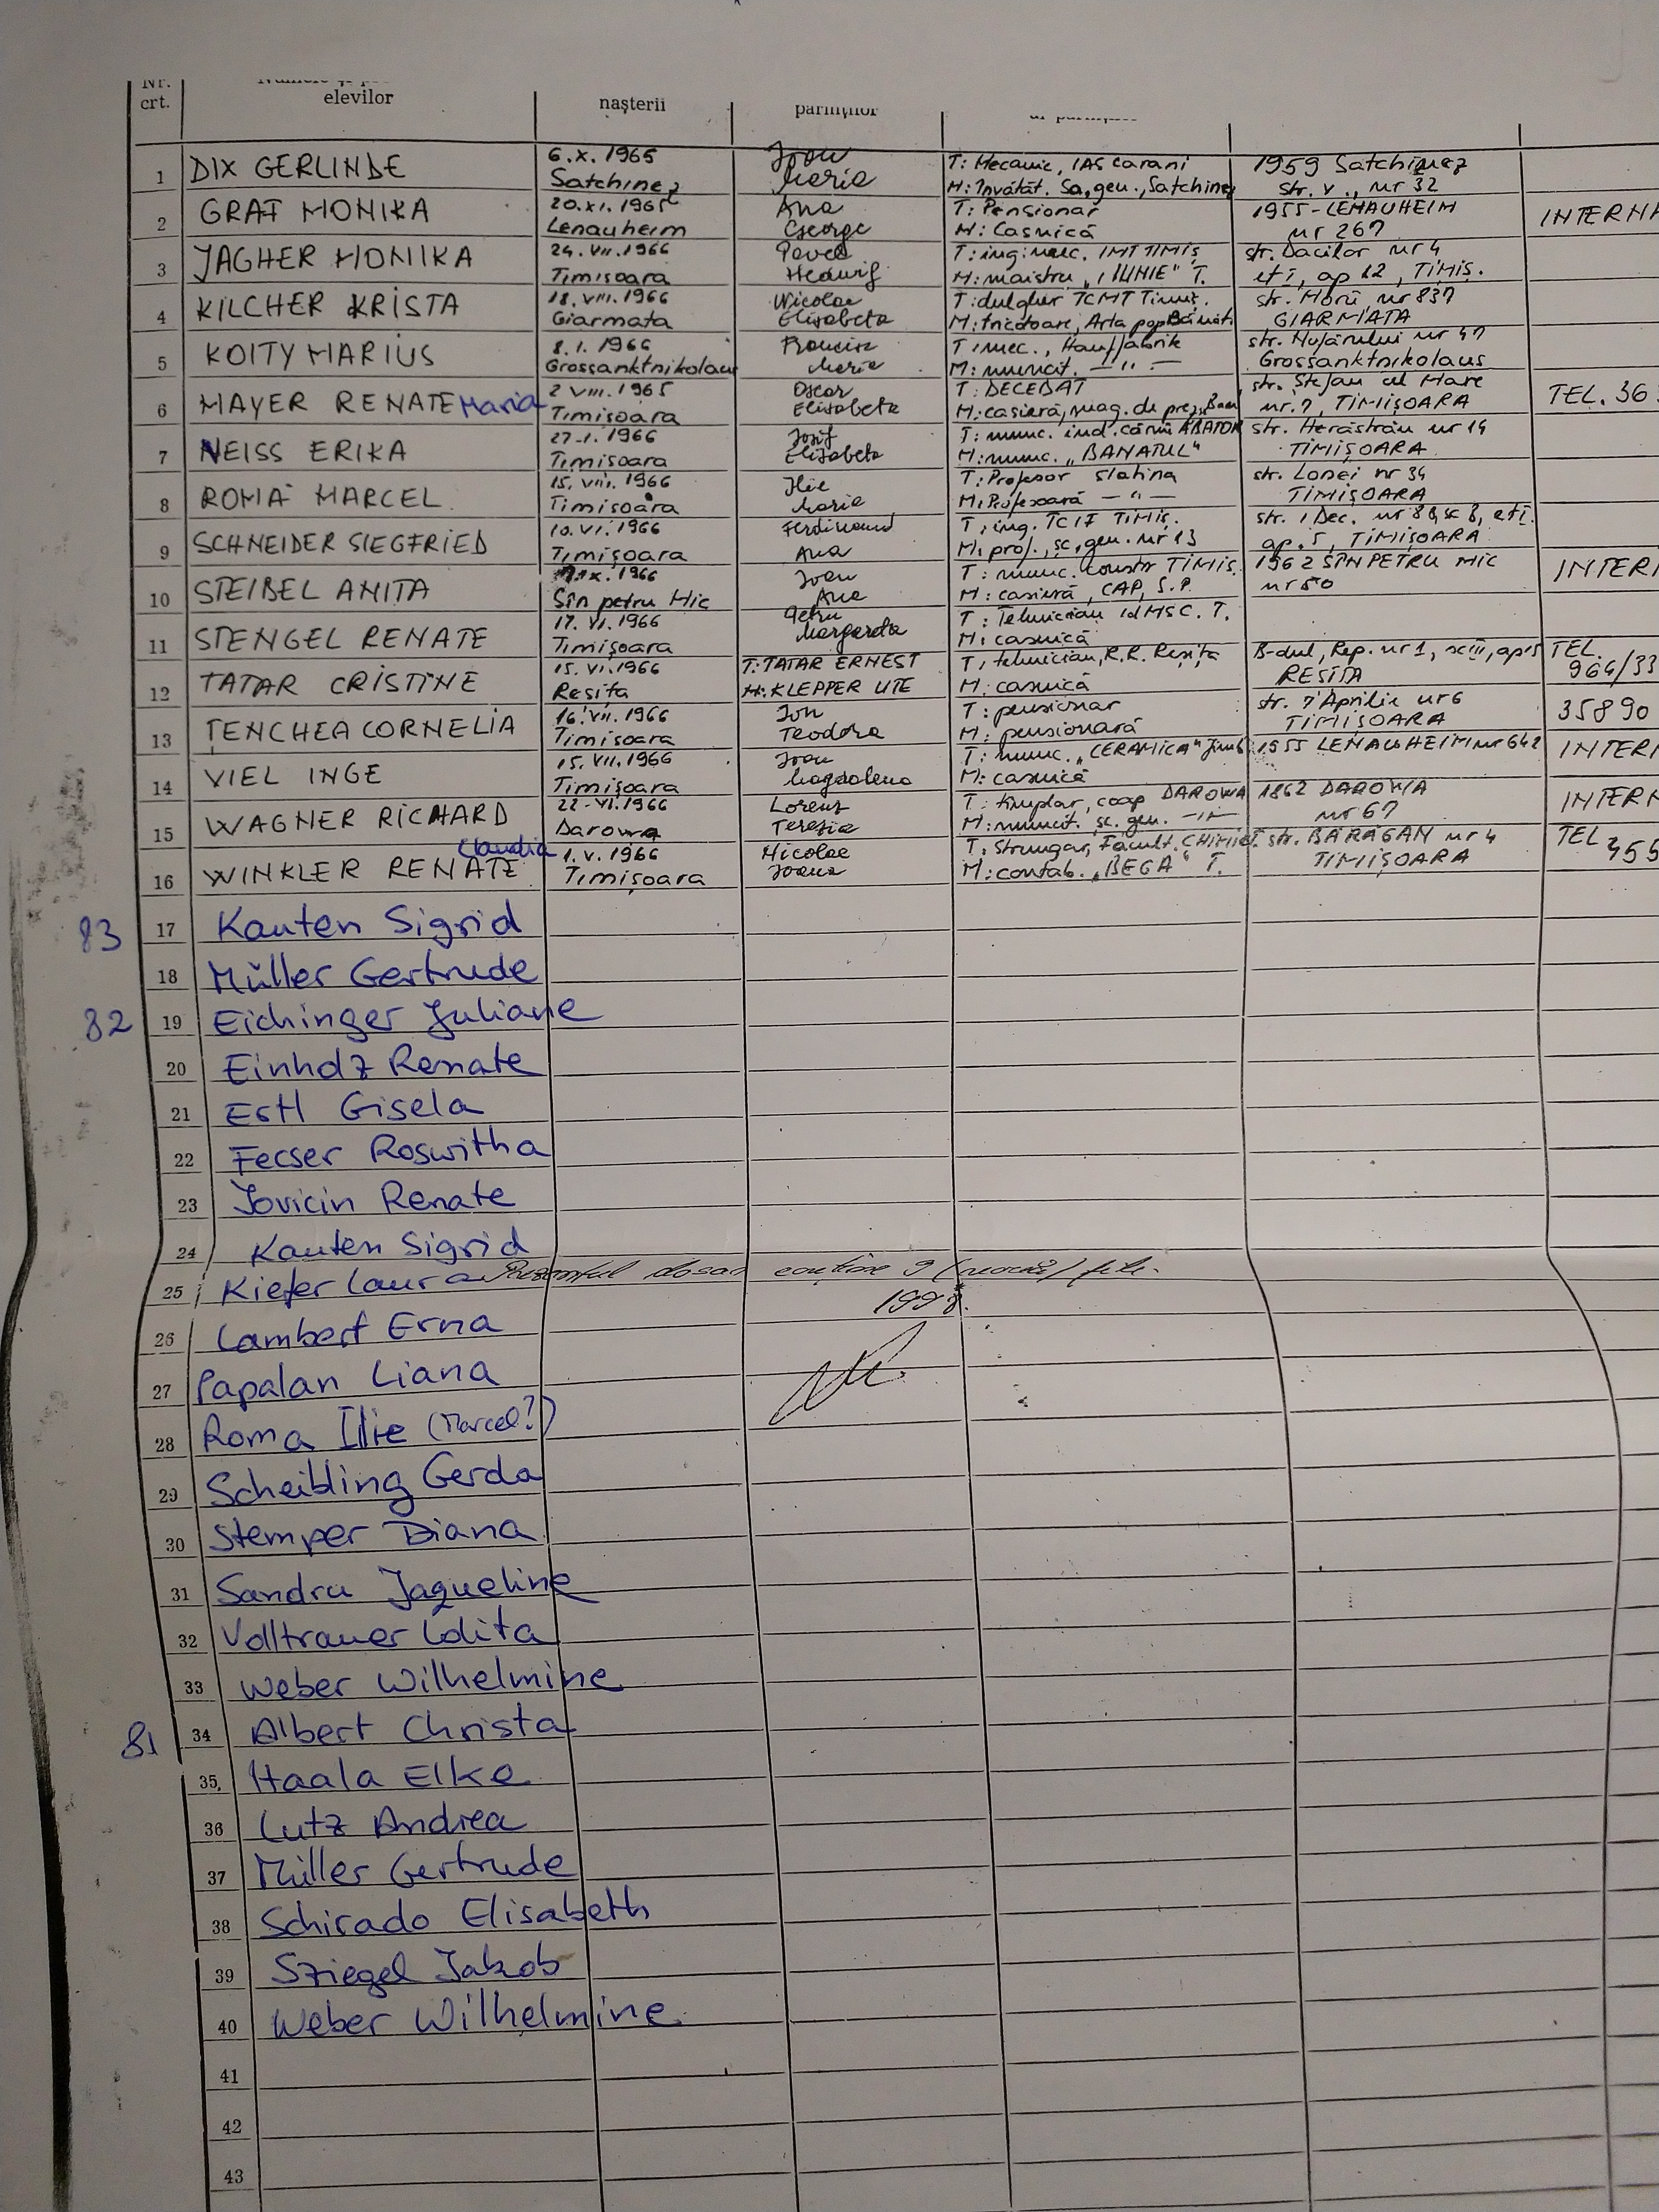 Nr.
crt.
elevilor
nașterii
părinților
1 DIX GERLINDE 6.X.1965 Ioan T: Mecanic, IAS Carani 1959 Satchinez
Satchinez Maria M: Învățăt. Șc. gen., Satchinez str. V., nr 32
2 GRAF MONIKA 20.XI.1965 Ana T: Pensionar 1955-LENAUHEIM INTERN
Lenauheim George M: Casnică nr 267
3 JAGHER MONIKA 24.VII.1966 Pavel T: ing. mec. IMT TIMIȘ str. Dacilor nr 4
Timisoara Hedwig M: maistru "1 IUNIE" T. et I, ap 12, TIMIȘ.
4 KILCHER KRISTA 18.VIII.1966 Nicolae T: dulgher TCMT Timiș. str. Morii, nr 837
Giarmata Elisabeta M: tricotoare, Arta pop. GIARMATA
5 KOITY MARIUS 8.1.1966 Francisc T: mec., Hanffabrik nr 47
Grossanktnikolaus Maria M: muncit. — " — Grossanktnikolaus
6 MAYER RENATE Maria 2 VIII.1965 Oscar T: DECEDAT str. Ștefan cel Mare TEL. 36
Timișoara Elisabeta M: casieră, mag. de nr. 7, TIMIȘOARA
7 NEISS ERIKA 27-1.1966 Iosif T: munc. ind. cărnii ABATOR str. Herăstrău nr 14
Timisoara Elisabeta M: munc. "BANATUL" TIMIȘOARA
8 ROMA MARCEL 15.VIII.1966 Ilie T: Profesor Slatina str. Lonei nr 34
Timisoara Maria M: Profesoară — " — TIMIȘOARA
9 SCHNEIDER SIEGFRIED 10.VI.1966 Ferdinand T: ing. TCIF TIMIȘ. str. 1 Dec. nr 88, sc B, et I.
Timișoara Ana M: prof., șc. gen. nr 13 ap. 5, TIMIȘOARA
10 STEIBEL ANITA .IX.1966 Ioan T: munc. constr TIMIȘ. 1962 SÎNPETRU MIC INTERN
Sîn petru Mic Ana M: casieră, CAP, S.P. nr 50
11 STENGEL RENATE 17.VI.1966 Petru T: Tehnician T.
Timișoara Margareta M: casnică
12 TATAR CRISTINE 15.VI.1966 T: TATAR ERNEST T: tehnician, R.R. Reșița B-dul, Rep. nr 1, sc III, ap 15 TEL.
Reșița M: KLEPPER UTE M: casnică RESITA 964/33
13 TENCHEA CORNELIA 16.VII.1966 Ion T: pensionar str. 7 Aprilie nr 6 35890
Timisoara Teodora M: pensionară TIMIȘOARA
14 VIEL INGE 15.VII.1966 Ioan T: munc. "CERAMICA" Jimb 1955 LENAUHEIM nr 642 INTERN
Timișoara Magdalena M: casnică
15 WAGNER RICHARD 22-VI.1966 Lorenz T: tîmplar, coop DAROWA 1862 DAROWA INTERN
Darowa Terezia M: muncit. șc. gen. — " — nr 67
16 WINKLER RENATE Claudia 1.V.1966 Nicolae T: Strungar, Facult. CHIMIE T. str. BĂRĂGAN nr 4 TEL 455
Timișoara Ioana M: contab. "BEGA" T. TIMIȘOARA
83 17 Kauten Sigrid
18 Müller Gertrude
82 19 Eichinger Juliane
20 Einholz Renate
21 Estl Gisela
22 Fecser Roswitha
23 Jovicin Renate
24 Kauten Sigrid
25 Kiefer Laura Prezentul dosar conține 9 (nouă) file.
1998.
26 Lambert Erna
27 Papalan Liana
28 Roma Ilie (Marcel?)
29 Scheibling Gerda
30 Stemper Diana
31 Sandru Jaqueline
32 Volltrauer Lolita
33 Weber Wilhelmine
81 34 Albert Christa
35 Haala Elke
36 Lutz Andrea
37 Müller Gertrude
38 Schirado Elisabeth
39 Sziegel Jakob
40 Weber Wilhelmine
41
42
43